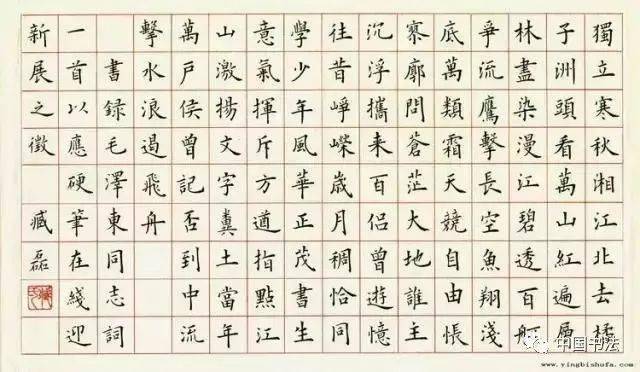 獨立寒秋湘江北去橘
子洲頭看萬山紅遍層
林盡染漫江碧透百舸
爭流鷹擊長空魚翔淺
底萬類霜天競自由悵
寥廓問蒼茫大地誰主
沉浮攜來百侶曾遊憶
往昔崢嶸歲月稠恰同
學少年風華正茂書生
意氣揮斥方遒指點江
山激揚文字糞土當年
萬戶侯曾記否到中流
擊水浪遏飛舟
書録毛澤東同志詞
一首以應硬筆在綫迎
新展之徵 臧磊
中国书法
www.yingbishufa.com